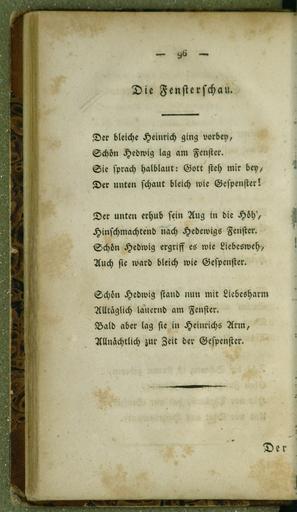 — 96 —
Die Fensterschau.
Der bleiche Heinrich ging vorbey,
Schön Hedwig lag am Fenster.
Sie sprach halblaut: Gott steh mir bey,
Der unten schaut bleich wie Gespenster!
Der unten erhub sein Aug in die Höh',
Hinschmachtend nach Hedewigs Fenster.
Schön Hedwig ergriff es wie Liebesweh,
Auch sie ward bleich wie Gespenster.
Schön Hedwig stand nun mit Liebesharm
Alltäglich lauernd am Fenster.
Bald aber lag sie in Heinrichs Arm,
Allnächtlich zur Zeit der Gespenster.
Der